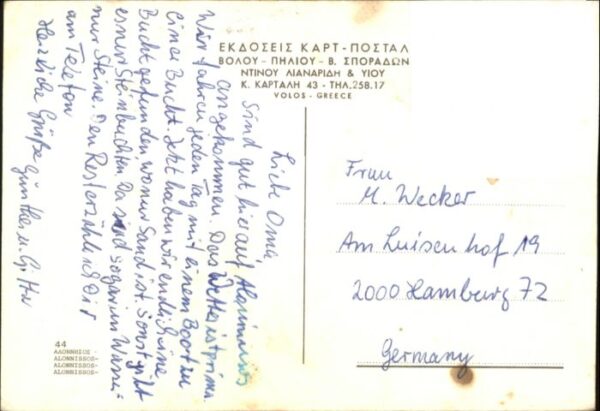 ΕΚΔΟΣΕΙΣ ΚΑΡΤ - ΠΟΣΤΑΛ
ΒΟΛΟΥ - ΠΗΛΙΟΥ - Β. ΣΠΟΡΑΔΩΝ
ΝΤΙΝΟΥ ΛΙΑΝΑΡΙΔΗ & ΥΙΟΥ
Κ. ΚΑΡΤΑΛΗ 43 - ΤΗΛ. 258.17
VOLOS - GREECE
Liebe Oma,
Sind gut hier auf Alonnissos
angekommen. Das Wetter ist prima.
Wir fahren jeden Tag mit einem Boot zu
einer Bucht. Jetzt haben wir endlich eine
Bucht gefunden, wo nur Sand ist. Sonst gibt
es nur Steinbuchten. Da sind sogar im Wasser
nur Steine. Den Rest erzähle ich Dir
am Telefon
Herzliche Grüße
Günther u.
Frau
M. Wecker
Am Luisenhof 19
2000 Hamburg 72
Germany
44
ΑΛΟΝΝΗΣΟΣ -
ALONNISSOS-
ALONNISSOS-
ALONNISSOS-